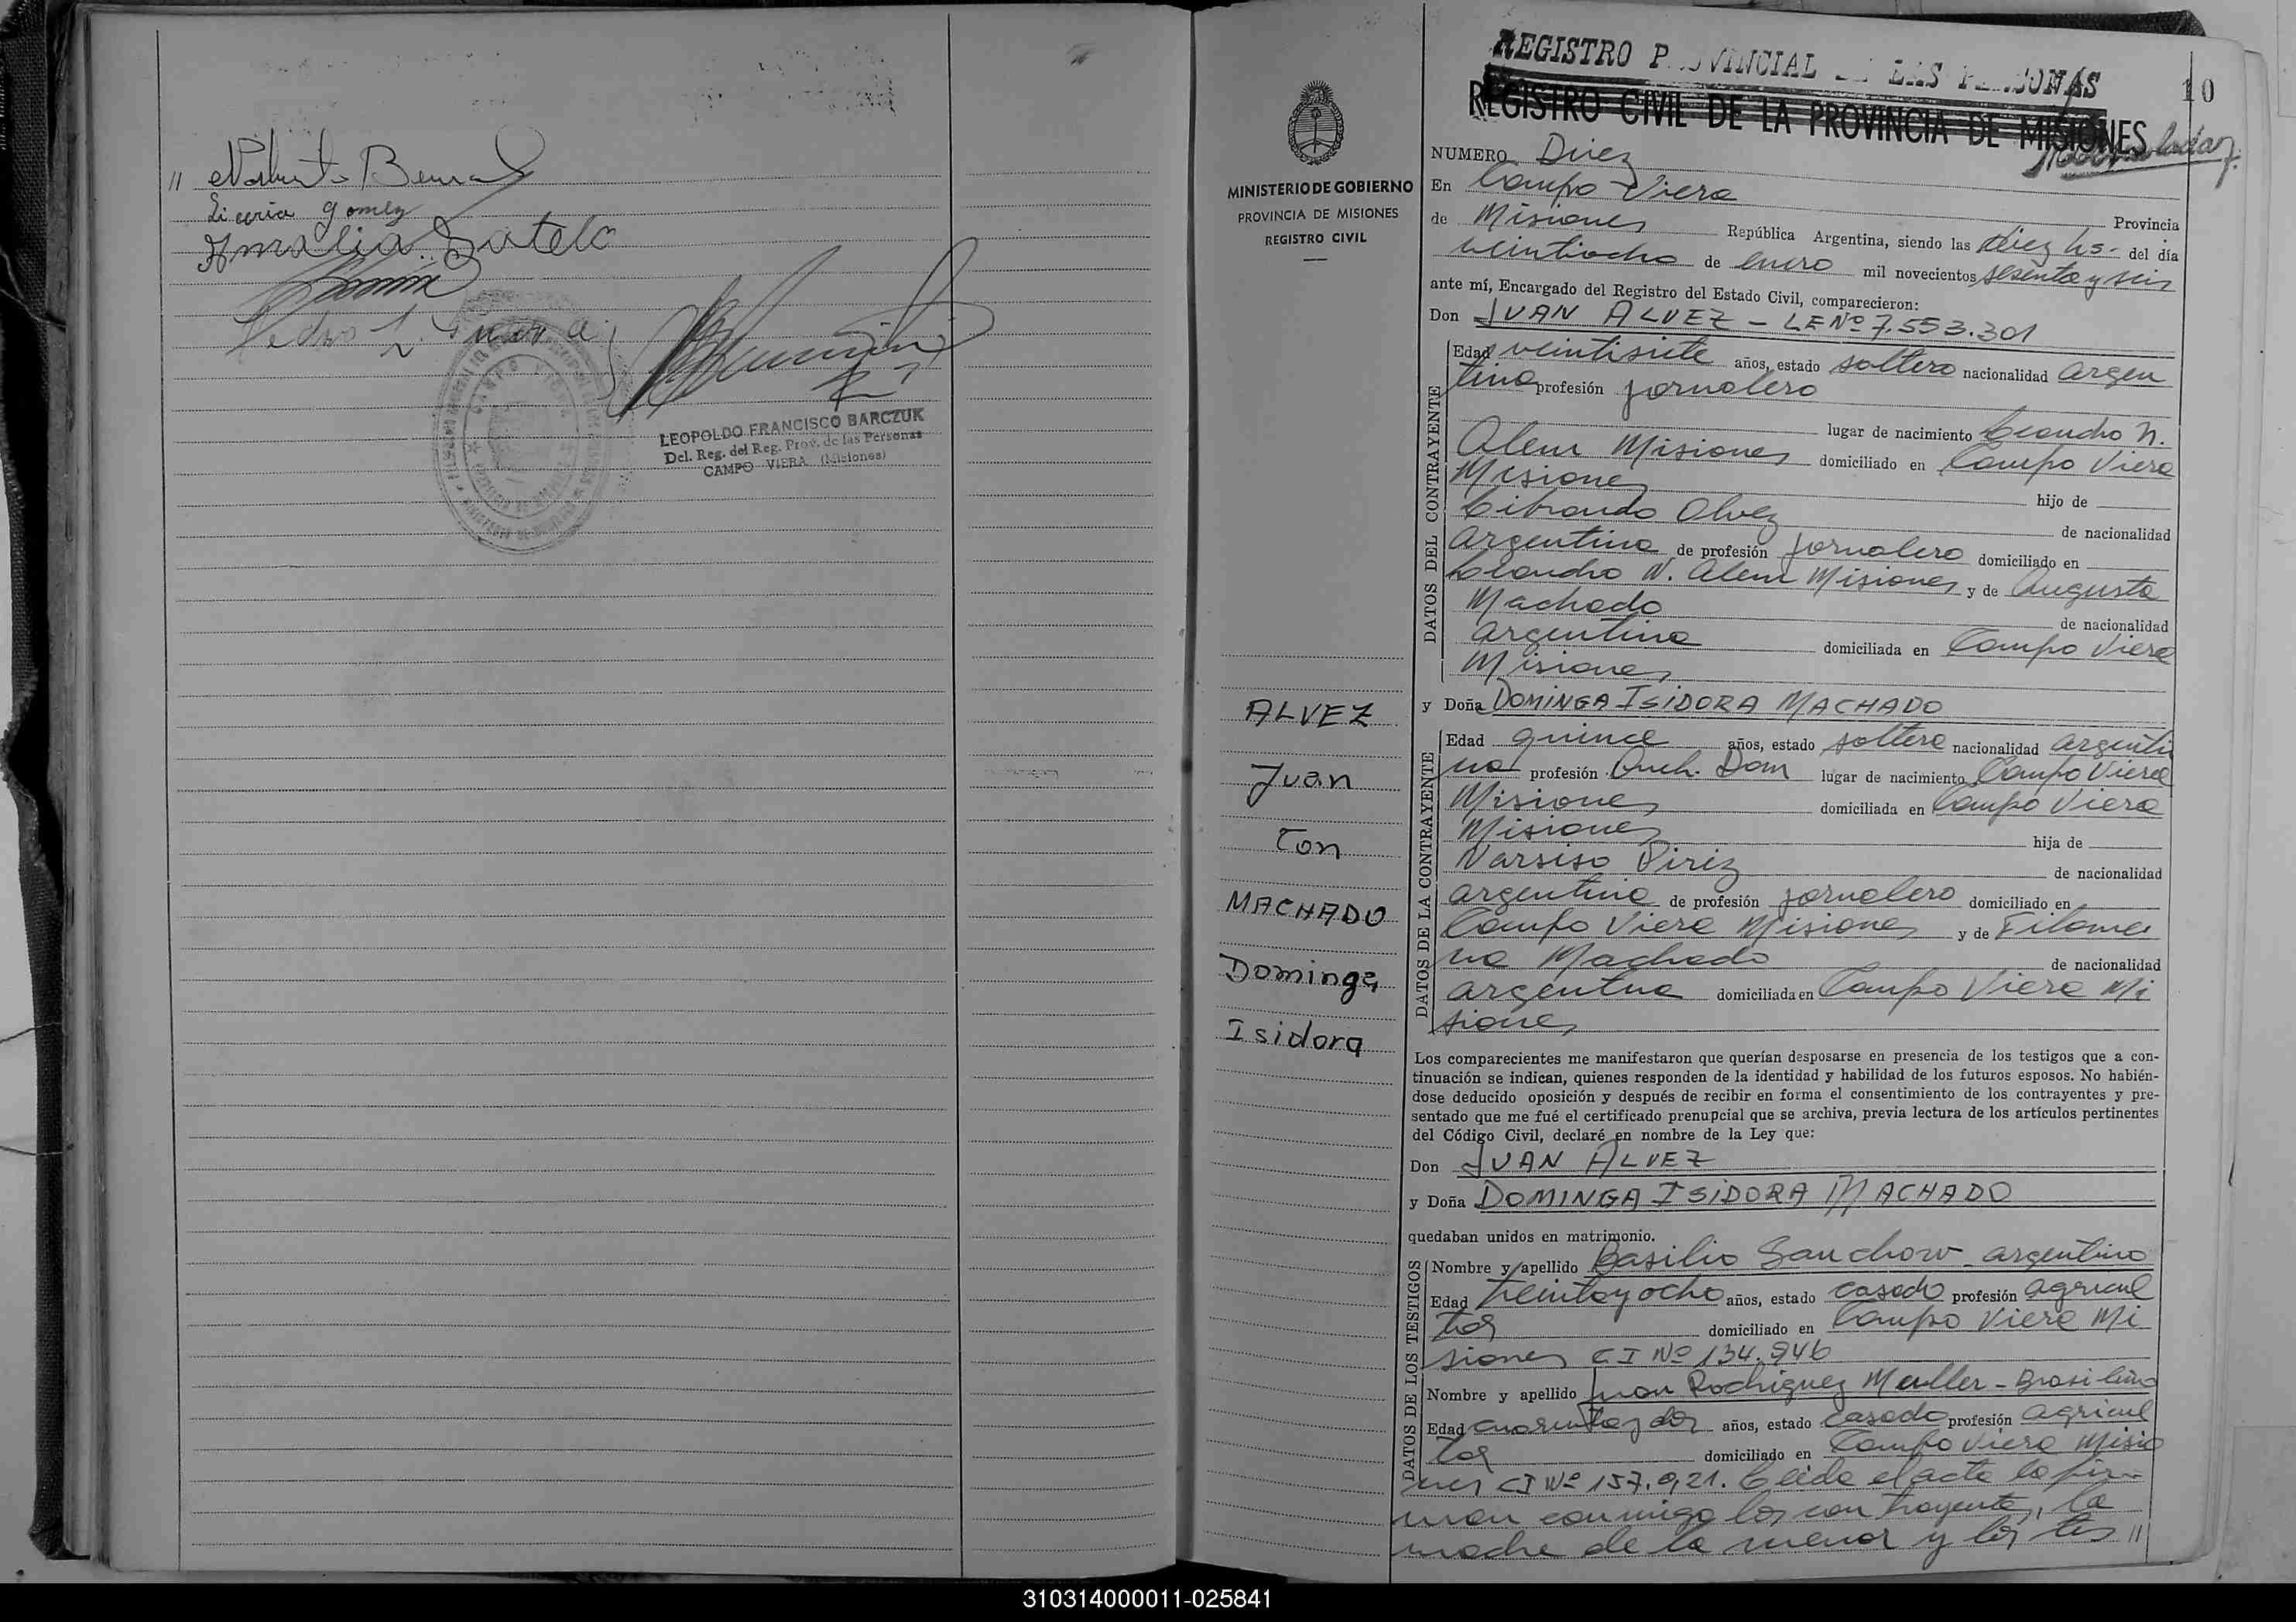 " Norberto
Liceria gomez
Amalia Sotelo
Pedro L.
LEOPOLDO FRANCISCO BARCZUK
Del. Reg. del Reg. Prov. de las Personas
CAMPO VIERA (Misiones)
REGISTRO PROVINCIAL DE LAS PERSONAS
REGISTRO CIVIL DE LA PROVINCIA DE MISIONES
10
MINISTERIO DE GOBIERNO
PROVINCIA DE MISIONES
REGISTRO CIVIL
ALVEZ
Juan
Con
MACHADO
Dominga
Isidora
NUMERO Diez
En Campo Viera
Provincia
de Misiones República Argentina, siendo las diez hs- del día
veintiocho de enero mil novecientos sesenta y seis
ante mí, Encargado del Registro del Estado Civil, comparecieron:
Don JUAN ALVEZ - LE Nº 7.553.301
DATOS DEL CONTRAYENTE
Edad veintisiete años, estado soltero nacionalidad argen
tina profesión jornalero
lugar de nacimiento Leandro N.
Alem Misiones domiciliado en Campo Viera
Misiones hijo de
Librando Alvez de nacionalidad
argentina de profesión jornalero domiciliado en
Leandro N. Alem Misiones y de Augusta
Machado de nacionalidad
argentina domiciliada en Campo Viera
Misiones
y Doña DOMINGA ISIDORA MACHADO
DATOS DE LA CONTRAYENTE
Edad quince años, estado soltera nacionalidad argenti
na profesión Queh. Dom lugar de nacimiento Campo Viera
Misiones domiciliada en Campo Viera
Misiones hija de
Narsiso Piriz de nacionalidad
argentina de profesión jornalero domiciliado en
Campo Viera Misiones y de Filome
na Machado de nacionalidad
argentina domiciliada en Campo Viera Mi
siones
Los comparecientes me manifestaron que querían desposarse en presencia de los testigos que a con-
tinuación se indican, quienes responden de la identidad y habilidad de los futuros esposos. No habién-
dose deducido oposición y después de recibir en forma el consentimiento de los contrayentes y pre-
sentado que me fué el certificado prenupcial que se archiva, previa lectura de los artículos pertinentes
del Código Civil, declaré en nombre de la Ley que:
Don JUAN ALVEZ
y Doña DOMINGA ISIDORA MACHADO
quedaban unidos en matrimonio.
DATOS DE LOS TESTIGOS
Nombre y apellido Basilio Sanchow - argentino
Edad treinta y ocho años, estado casado profesión agricul
tor domiciliado en Campo Viera Mi
siones CI Nº 134.946
Nombre y apellido Juan Rodriguez Muller - Brasileño
Edad cuarenta y dos años, estado casado profesión agricul
tor domiciliado en Campo Viera Misio
nes CI Nº 157.921. Leida el acta la fir-
man conmigo los contrayentes, la
madre de la menor y los tes "
310314000011-025841